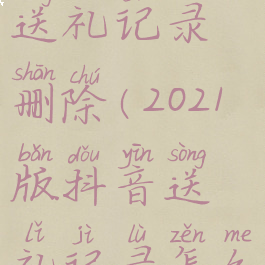 送礼记录
shān chú
删除(2021
bǎn dǒu yīn sòng
版抖音送
lǐ jì lù zěn me
礼记录怎么